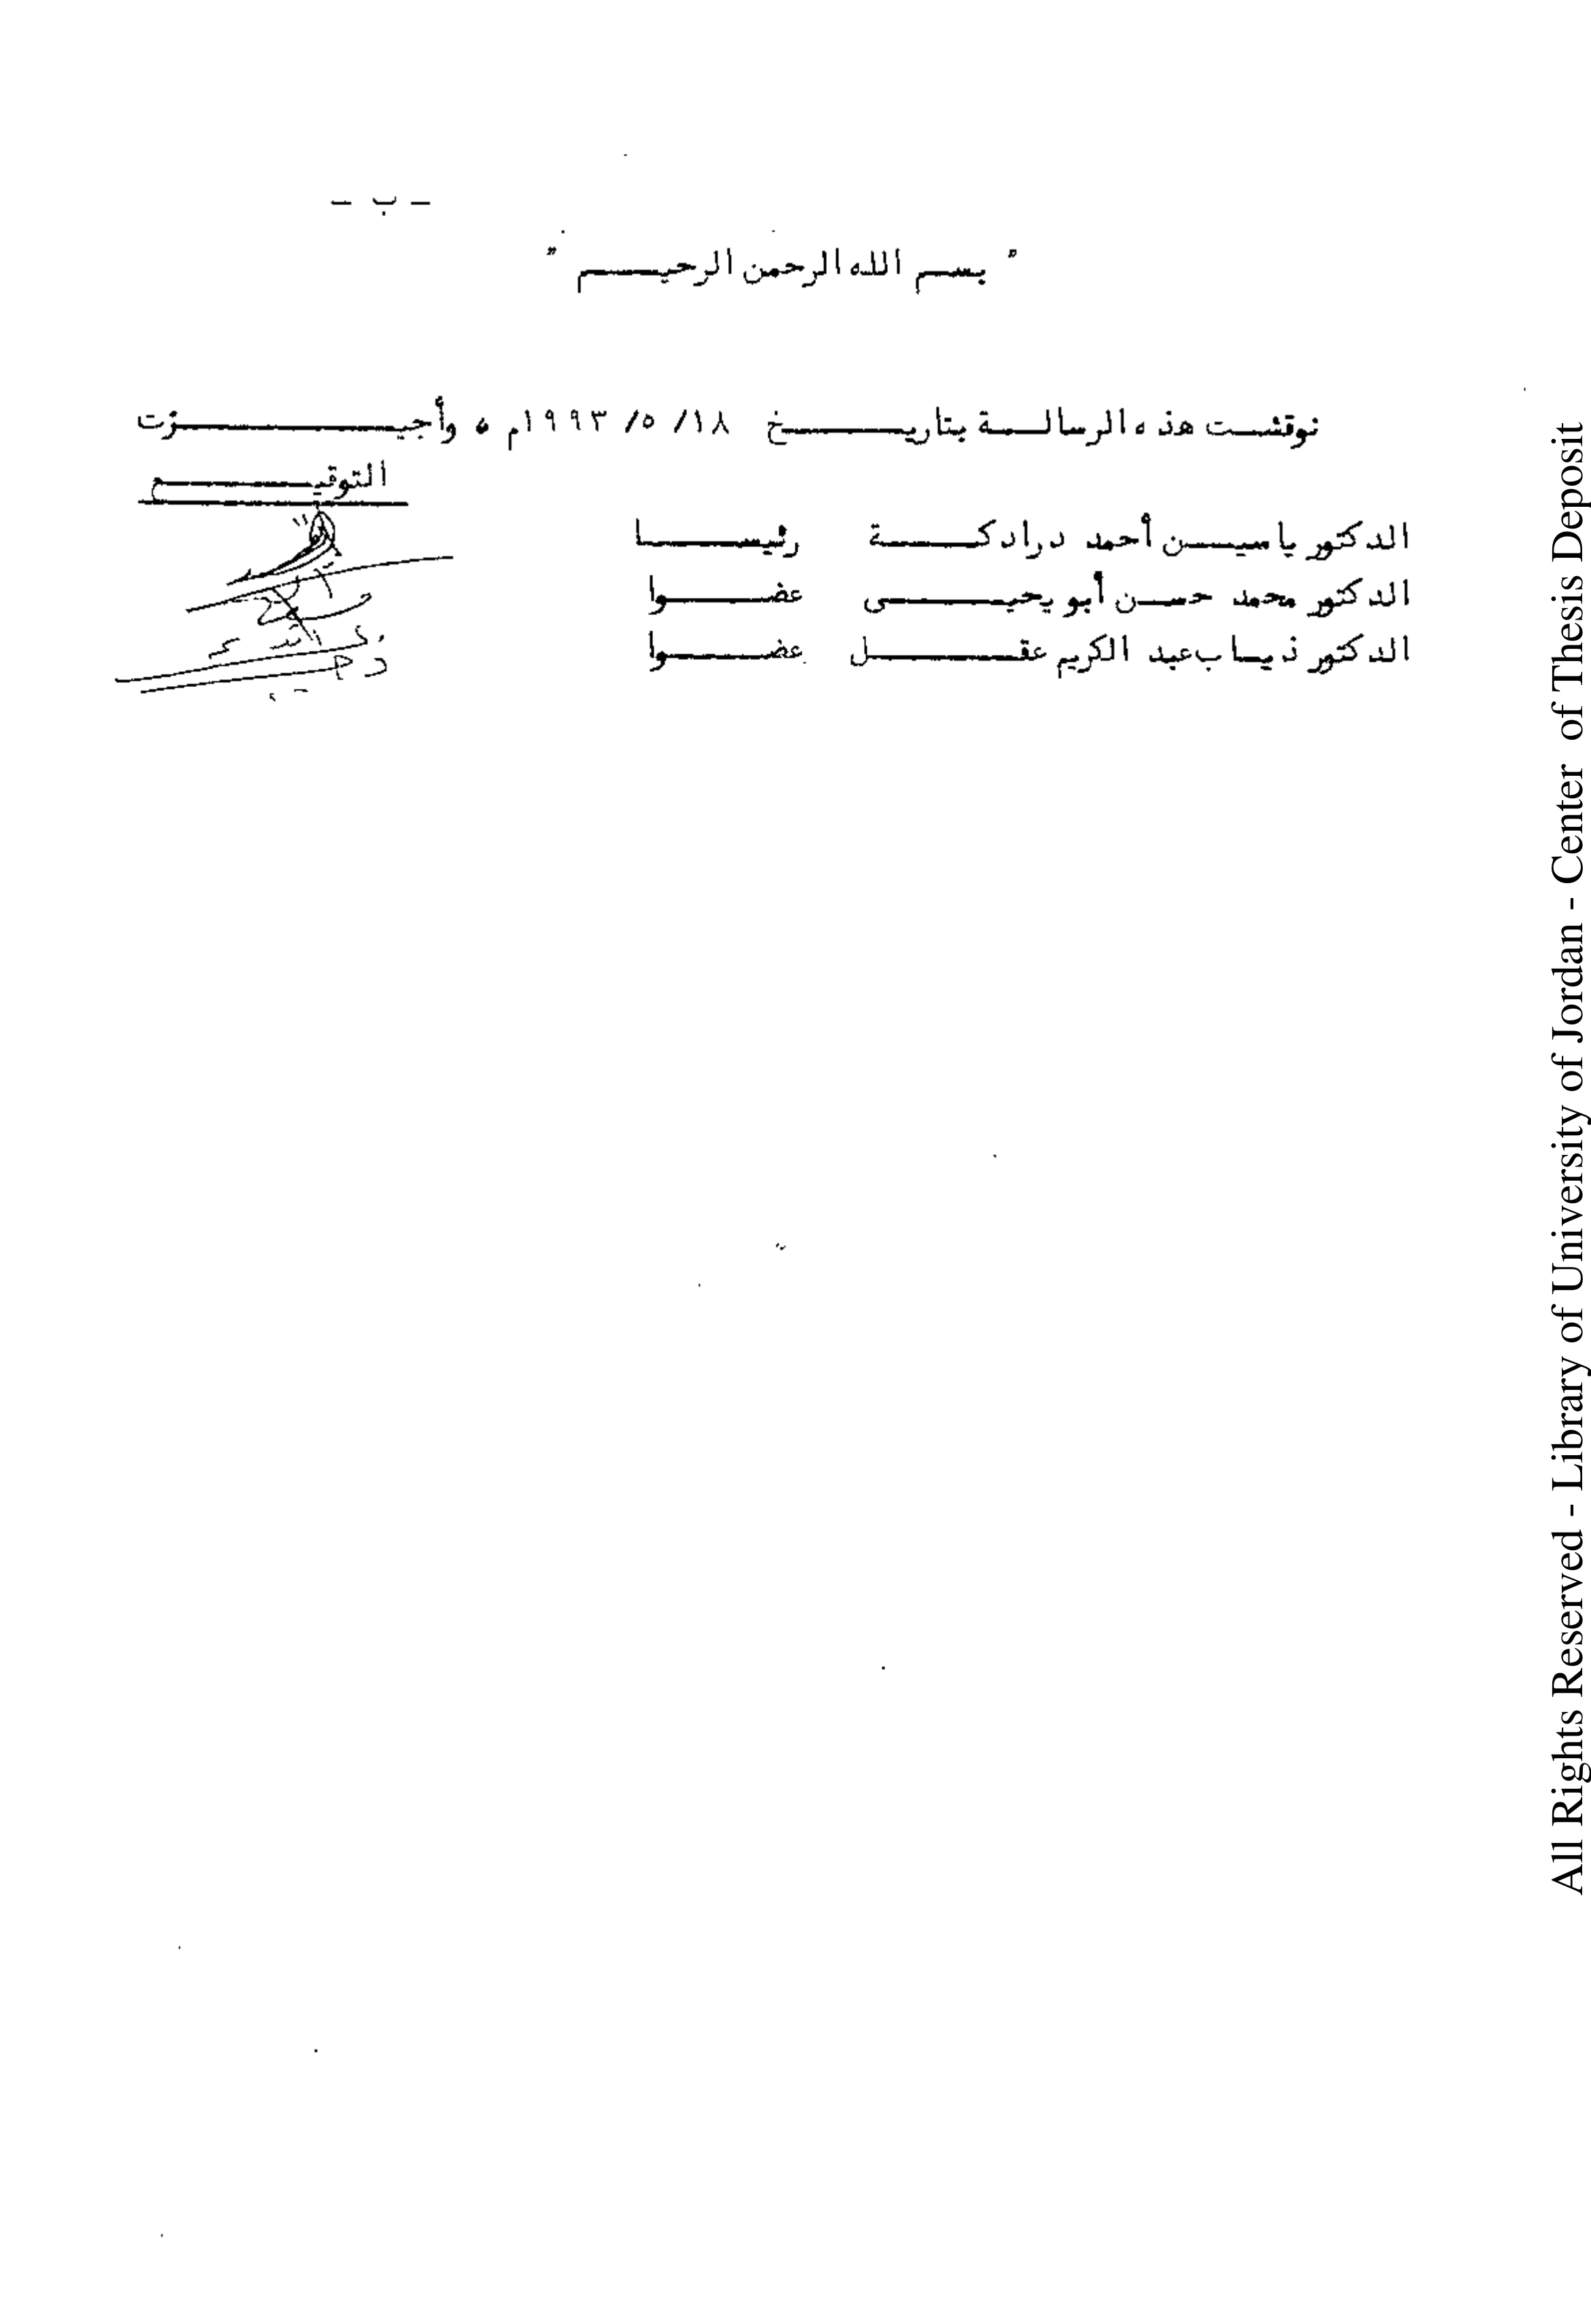 - ب -
" بسم الله الرحمن الرحيم "
نوقشت هذه الرسالة بتاريخ ١٨/ ٥/ ١٩٩٣م ، وأجيزت
التوقيع
الدكتور ياسين أحمد درادكة رئيسا
الدكتور محمد حسن أبو يحيى عضوا
الدكتور ذياب عبد الكريم عقل عضوا
All Rights Reserved - Library of University of Jordan - Center of Thesis Deposit